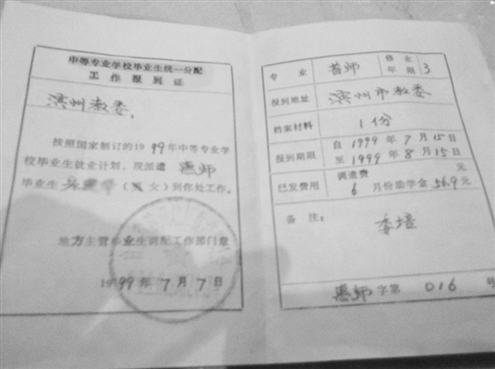 中等专业学校毕业生统一分配
工作报到证
滨州教委:
按照国家制订的1999年中等专业学
校毕业生就业计划,现派遣 惠师
毕业生 (男女)到你处工作。
地方主管毕业生调配工作部门章
1999年7月7日
专业 普师 修业年限 3
报到地址 滨州市教委
档案材料 1份
报到期限 自1999年7月15日
至1999年8月15日
已发费用 调遣费 元
6月份助学金56.9元
备注: 委培
惠师字第 016 号